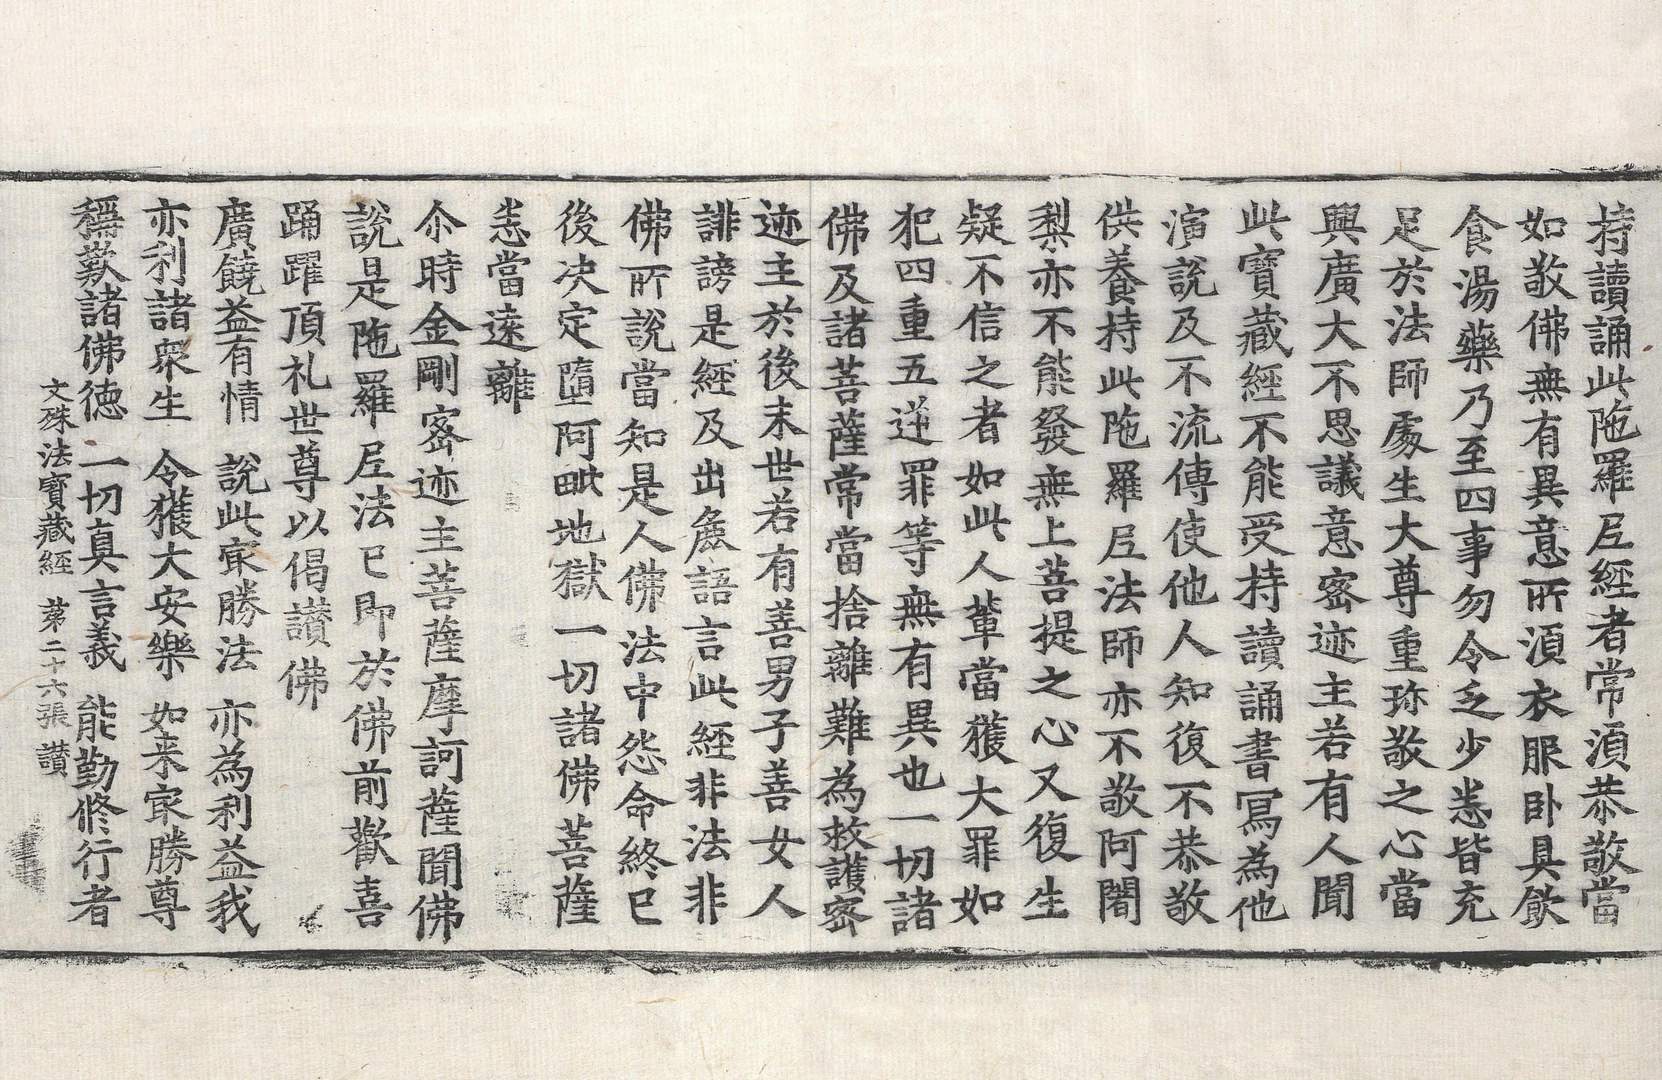 持讀誦此陁羅尼經者常湏恭敬當
如敬佛無有異意所湏衣服卧具飲
食湯藥乃至四事勿令乏少悉皆充
足於法師處生大尊重珎敬之心當
興廣大不思議意密迹主若有人聞
此寶藏經不能受持讀誦書寫為他
演說及不流傳使他人知復不恭敬
供養持此陁羅尼法師亦不敬阿闍
梨亦不能發無上菩提之心又復生
疑不信之者如此人輩當獲大罪如
犯四重五逆罪等無有異也一切諸
佛及諸菩薩常當捨離難為救護密
迹主於後末世若有善男子善女人
誹謗是經及出麁語言此經非法非
佛所說當知是人佛法中怨命終已
後决定墮阿毗地獄一切諸佛菩薩
悉當遠離
尒時金剛密迹主菩薩摩訶薩聞佛
說是陁羅尼法已即於佛前歡喜
踊躍頂礼世尊以偈讃佛
廣饒益有情 說此㝡勝法 亦為利益我
亦利諸衆生 令獲大安樂 如来㝡勝尊
稱歎諸佛德 一切真言義 能勤修行者
文殊法寶藏經 苐二十六張 讃